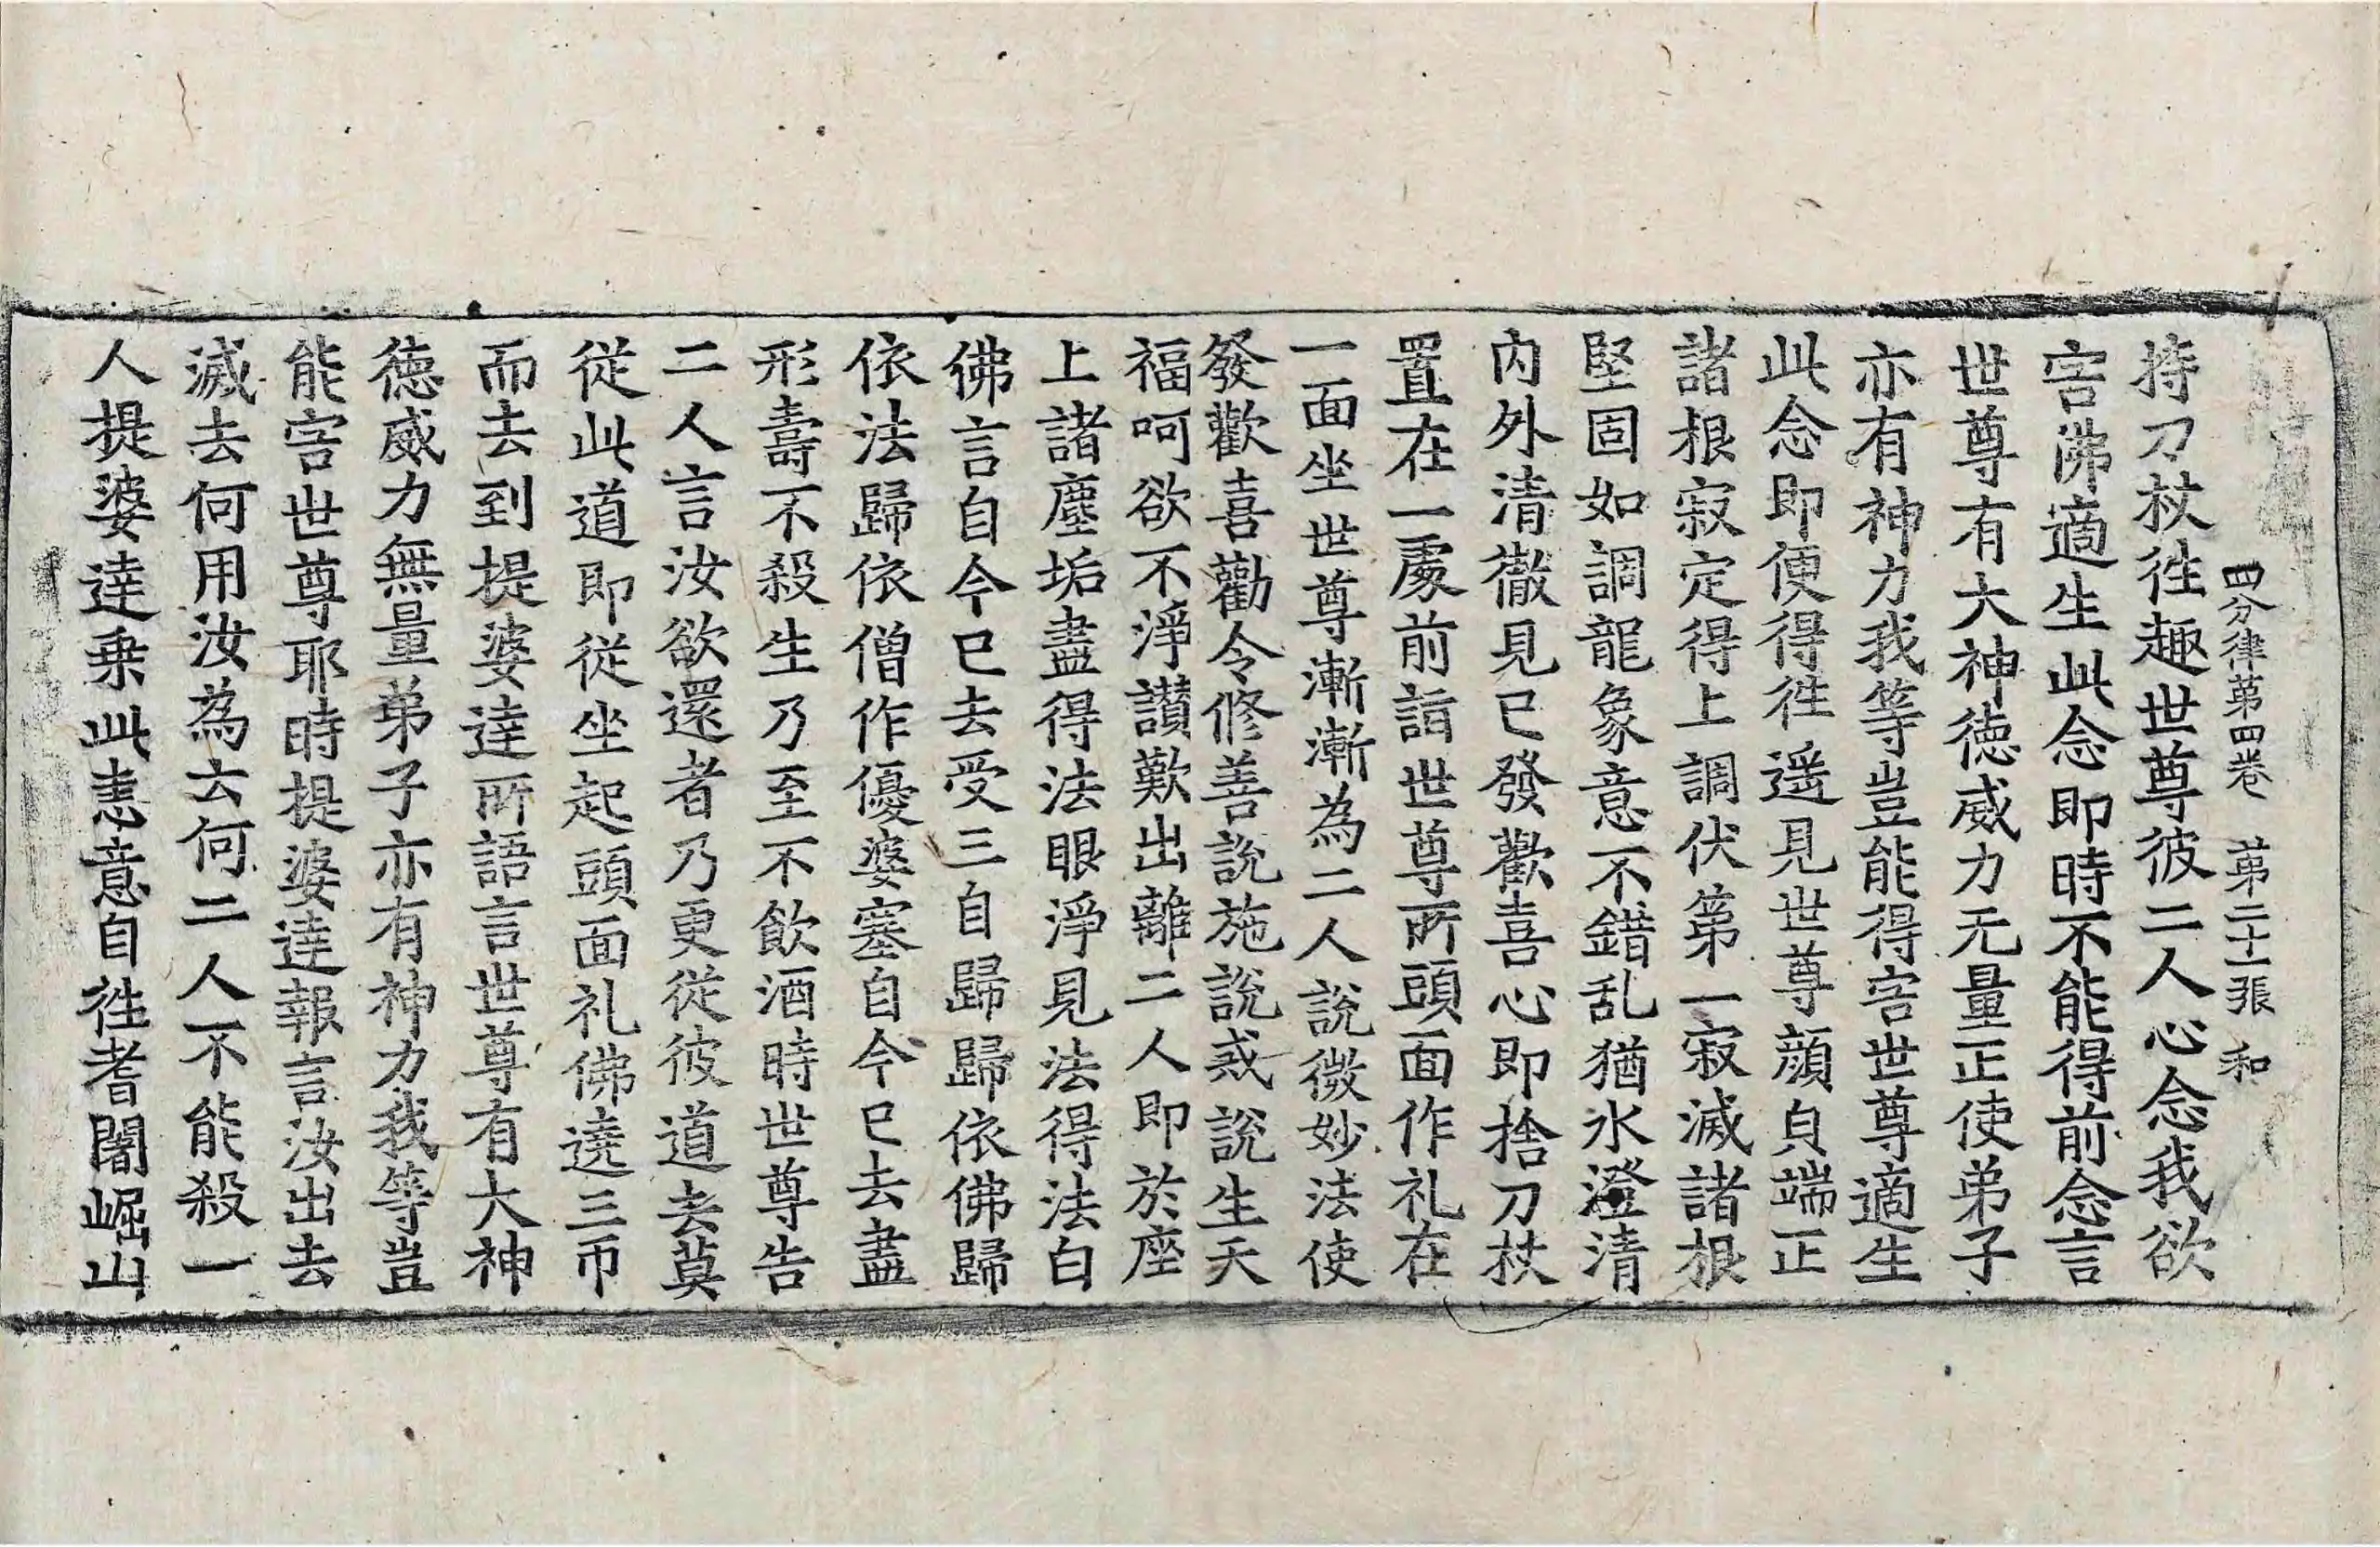 四分律第四卷 第二十一張 和
持刀杖徃趣世尊彼二人心念我欲
害佛適生此念即時不能得前念言
世尊有大神徳威力无量正使弟子
亦有神力我等豈能得害世尊適生
此念即便得徃遥見世尊顔皃端正
諸根寂定得上調伏第一寂滅諸根
堅固如調龍象意不錯乱猶水澄清
内外清徹見已發歡喜心即捨刀杖
置在一處前詣世尊所頭面作礼在
一面坐世尊漸漸為二人說微妙法使
發歡喜勸令修善說施說戒說生天
福呵欲不淨讃歎出離二人即於座
上諸塵垢盡得法眼淨見法得法白
佛言自今已去受三自歸歸依佛歸
依法歸依僧作優婆塞自今已去盡
形壽不殺生乃至不飲酒時世尊告
二人言汝欲還者乃更從彼道去莫
從此道即從坐起頭面礼佛遶三帀
而去到提婆達所語言世尊有大神
徳威力無量弟子亦有神力我等豈
能害世尊耶時提婆達報言汝出去
滅去何用汝為云何二人不能殺一
人提婆達乗此恚意自徃耆闍崛山